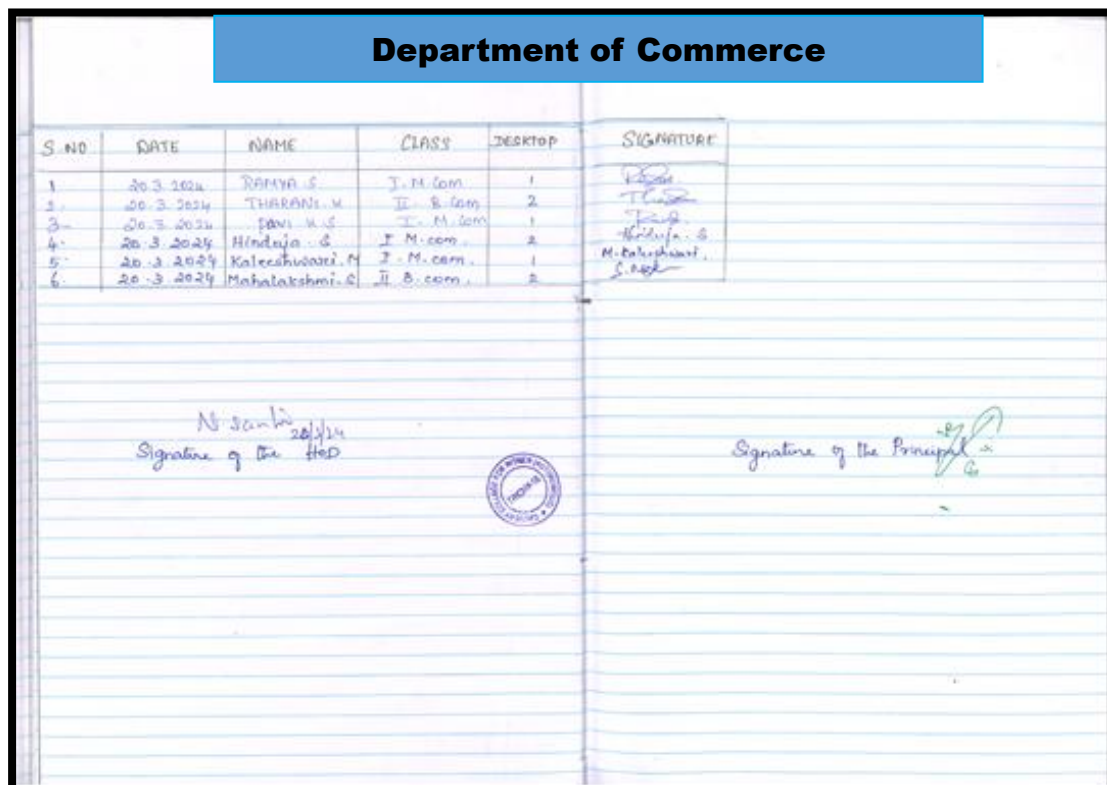 Department of Commerce
S.NO DATE NAME CLASS DESKTOP SIGNATURE
1 20.3.2024 RAMYA.S I.M.Com 1
2. 20.3.2024 THARANI. II. B.Com 2
3. 20.3.2024 I. M.Com 1
4. 20.3.2024 Hinduja.S I M.com. 2 Hinduja.S
5. 20.3.2024 Kaleeshwari.M I.M.com. 1 M.Kaleeshwari.
6. 20.3.2024 Mahalakshmi.S II B.com. 2
N. Santhi 20/3/24
Signature of the HOD
Signature of the Principal
COLLEGE FOR WOMEN (AUTONOMOUS)